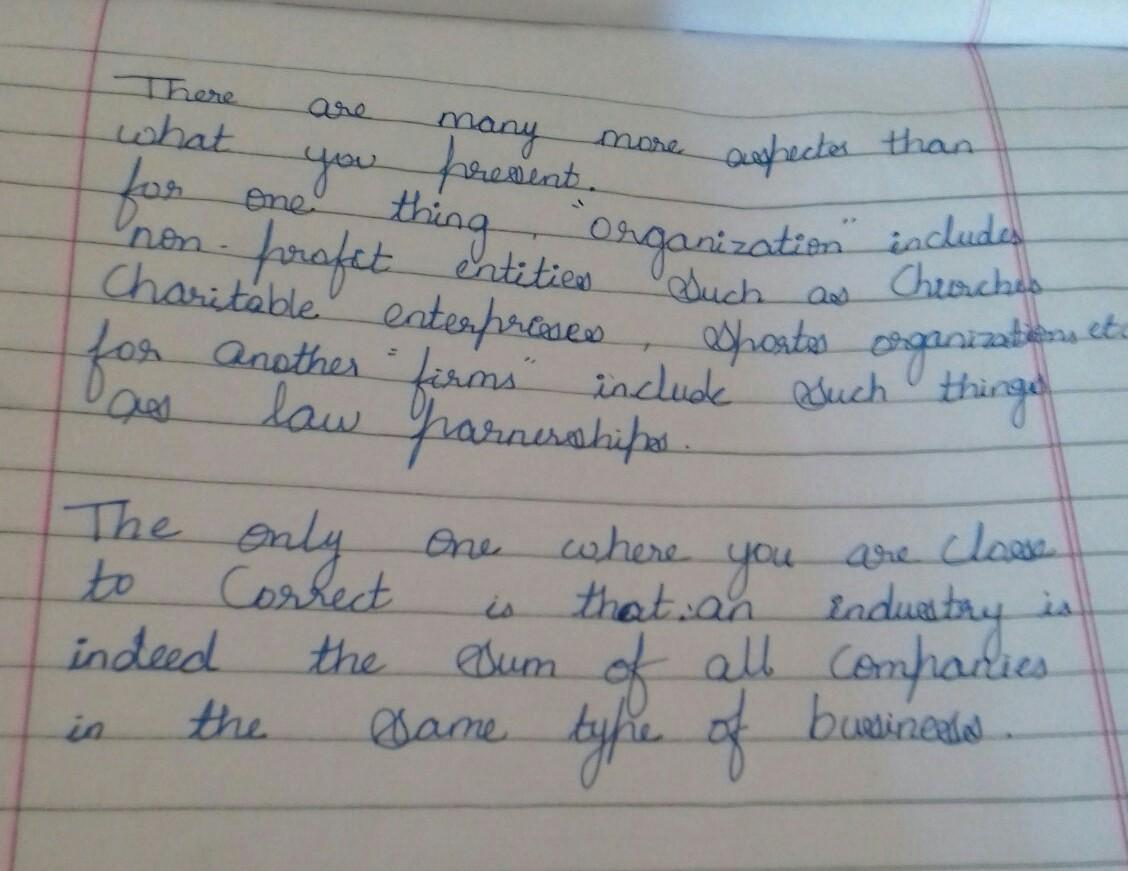 There are many more aspects than
what you present.
for one thing, "organization" includes
non-profit entities such as Churches
Charitable enterprises, sports organizations, etc
for another "firms" include such things
as law parnerships.
The only one where you are close
to Correct is that: an industry is
indeed the sum of all Companies
in the same type of business.